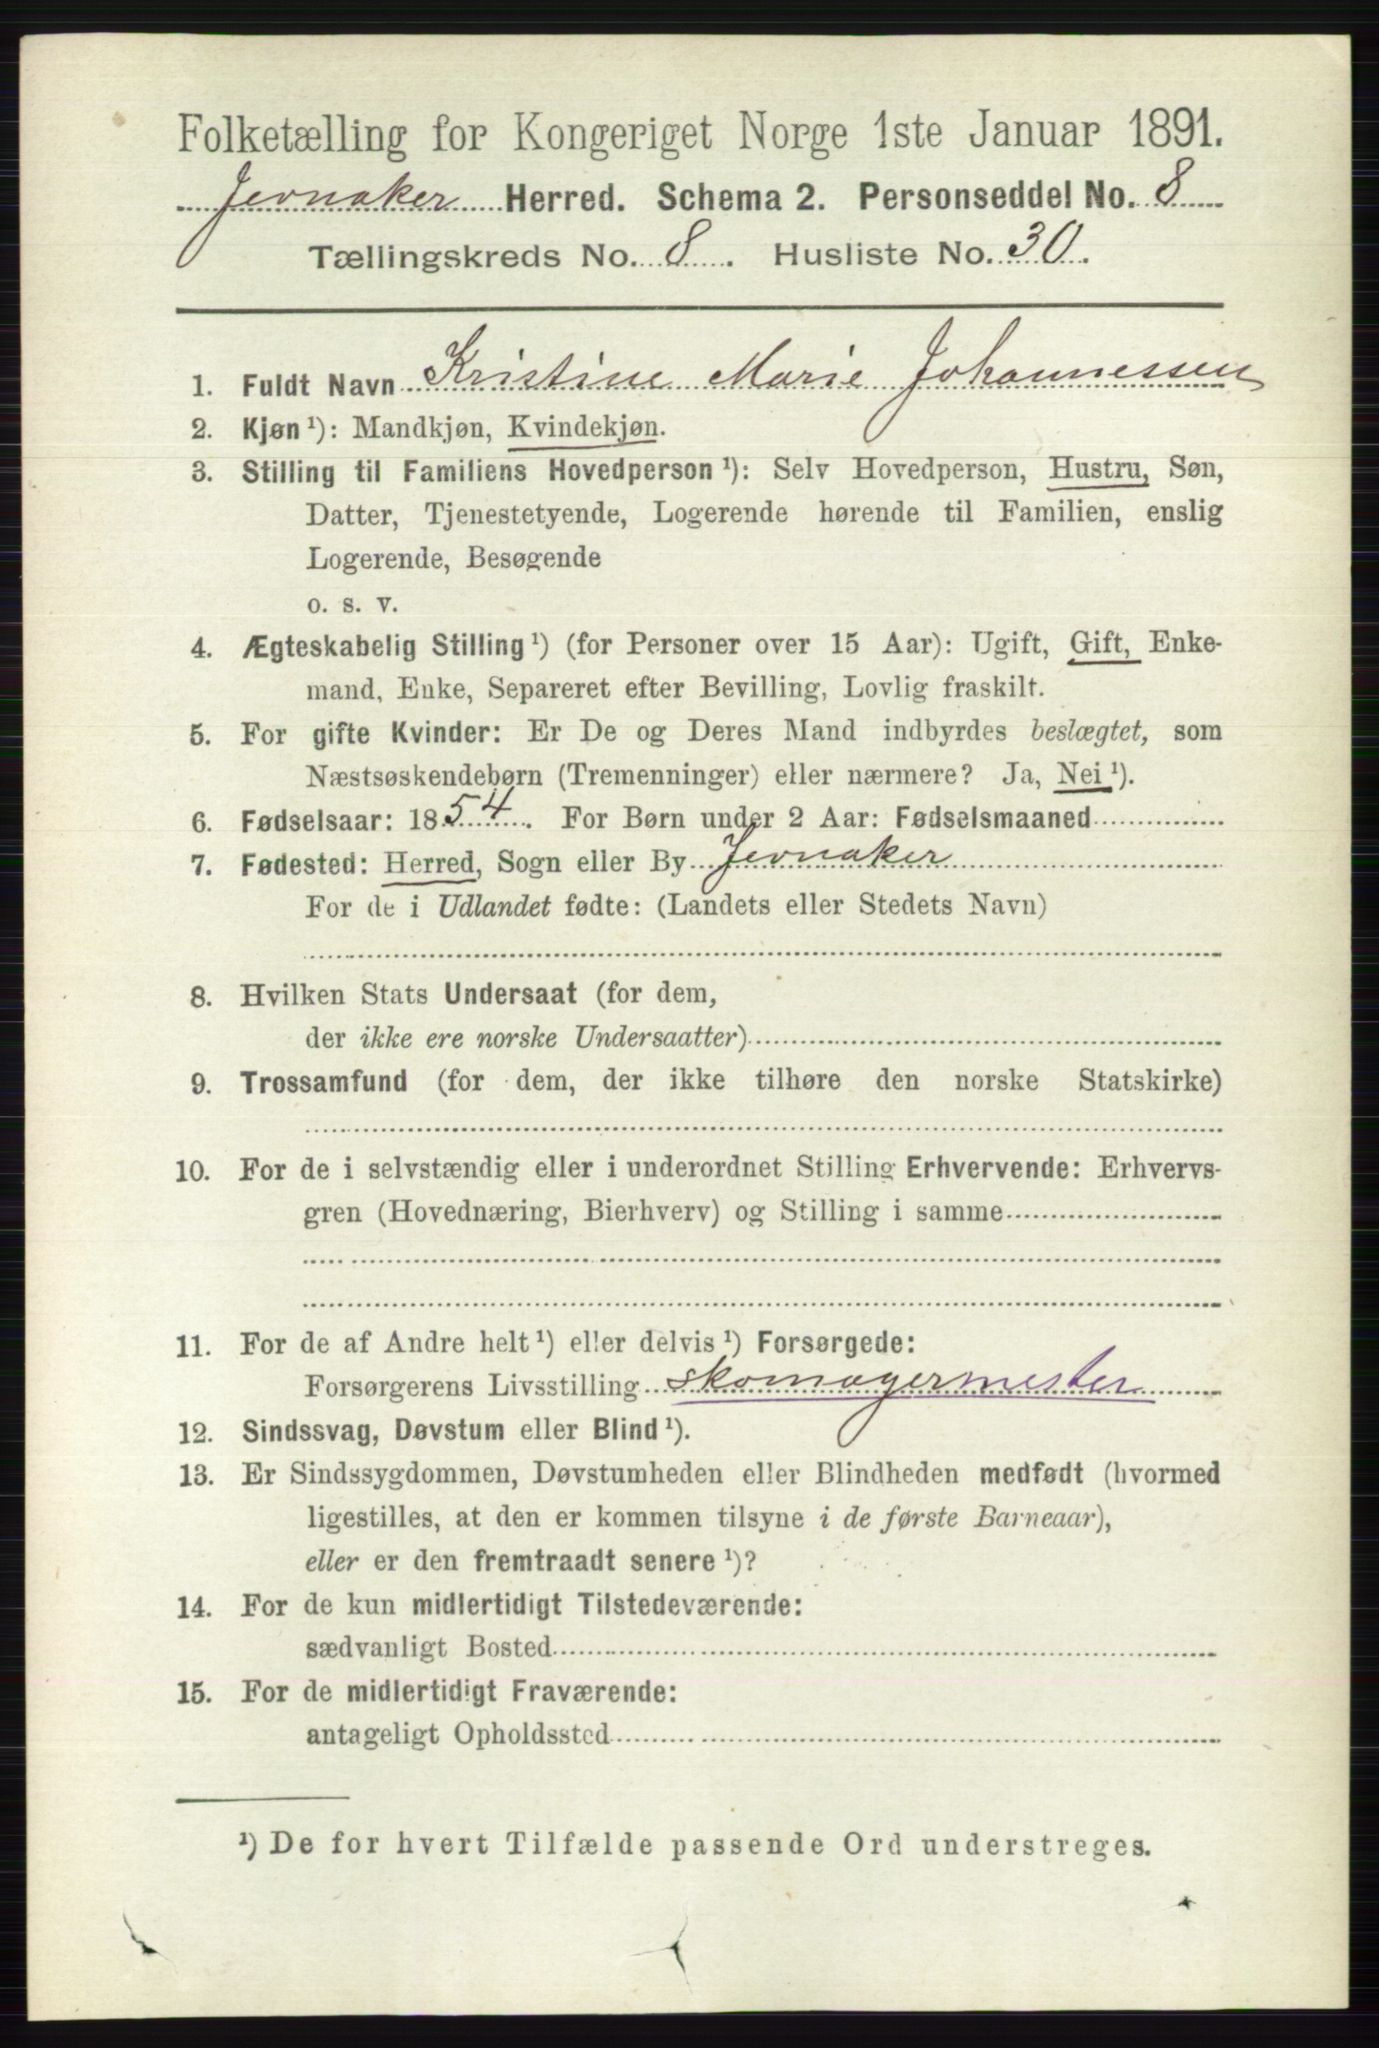 Folketælling for Kongeriget Norge 1ste Januar 1891.
Jevnaker Herred. Schema 2. Personseddel No. 8
Tællingskreds No. 8. Husliste No. 30.
1. Fuldt Navn Kristine Marie Johannessen
2. Kjøn¹): Mandkjøn, Kvindekjøn.
3. Stilling til Familiens Hovedperson¹): Selv Hovedperson, Hustru, Søn,
Datter, Tjenestetyende, Logerende hørende til Familien, enslig
Logerende, Besøgende
o. s. v.
4. Ægteskabelig Stilling¹) (for Personer over 15 Aar): Ugift, Gift, Enke-
mand, Enke, Separeret efter Bevilling, Lovlig fraskilt.
5. For gifte Kvinder: Er De og Deres Mand indbyrdes beslægtet, som
Næstsøskendebørn (Tremenninger) eller nærmere? Ja, Nei¹).
6. Fødselsaar: 1854. For Børn under 2 Aar: Fødselsmaaned
7. Fødested: Herred, Sogn eller By Jevnaker
For de i Udlandet fødte: (Landets eller Stedets Navn)
8. Hvilken Stats Undersaat (for dem,
der ikke ere norske Undersaatter)
9. Trossamfund (for dem, der ikke tilhøre den norske Statskirke)
10. For de i selvstændig eller i underordnet Stilling Erhvervende: Erhvervs-
gren (Hovednæring, Bierhverv) og Stilling i samme
11. For de af Andre helt¹) eller delvis¹) Forsørgede:
Forsørgerens Livsstilling skomagermester
12. Sindssvag, Døvstum eller Blind¹).
13. Er Sindssygdommen, Døvstumheden eller Blindheden medfødt (hvormed
ligestilles, at den er kommen tilsyne i de første Barneaar),
eller er den fremtraadt senere¹)?
14. For de kun midlertidigt Tilstedeværende:
sædvanligt Bosted
15. For de midlertidigt Fraværende:
antageligt Opholdssted
¹) De for hvert Tilfælde passende Ord understreges.